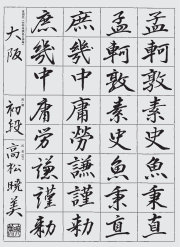 孟軻敦素史魚秉直
孟軻敦素史魚秉直
庶幾中庸勞謙謹勅
庶幾中庸労謙謹勅
大阪 初段 高松暁美